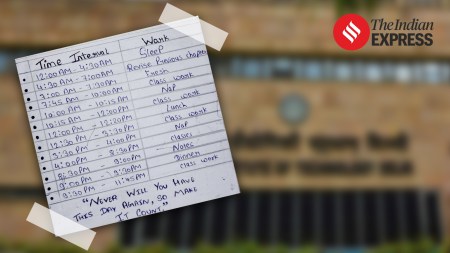 The Indian
EXPRESS
Time Interval Work
12:00 AM - 4:30AM SleeP
4:30 AM - 7:00AM Revise Previous chapter
7:00 AM - Fresh
7:45 AM - 10:00AM Class work
10:00 AM - 10:15AM Nap
10:15 AM - 12:00PM class work
12:00PM - 12:30PM Lunch
12:30PM - class work
- 4:00PM Nap
4:00PM - 8:30PM classes
8:30PM - 9:00PM Notes
9:00PM - Dinner
9:30PM - 11:45PM class work
"NEVER WILL YOU HAVE
THIS DAY AGAIN, SO MAKE
IT COUNT."